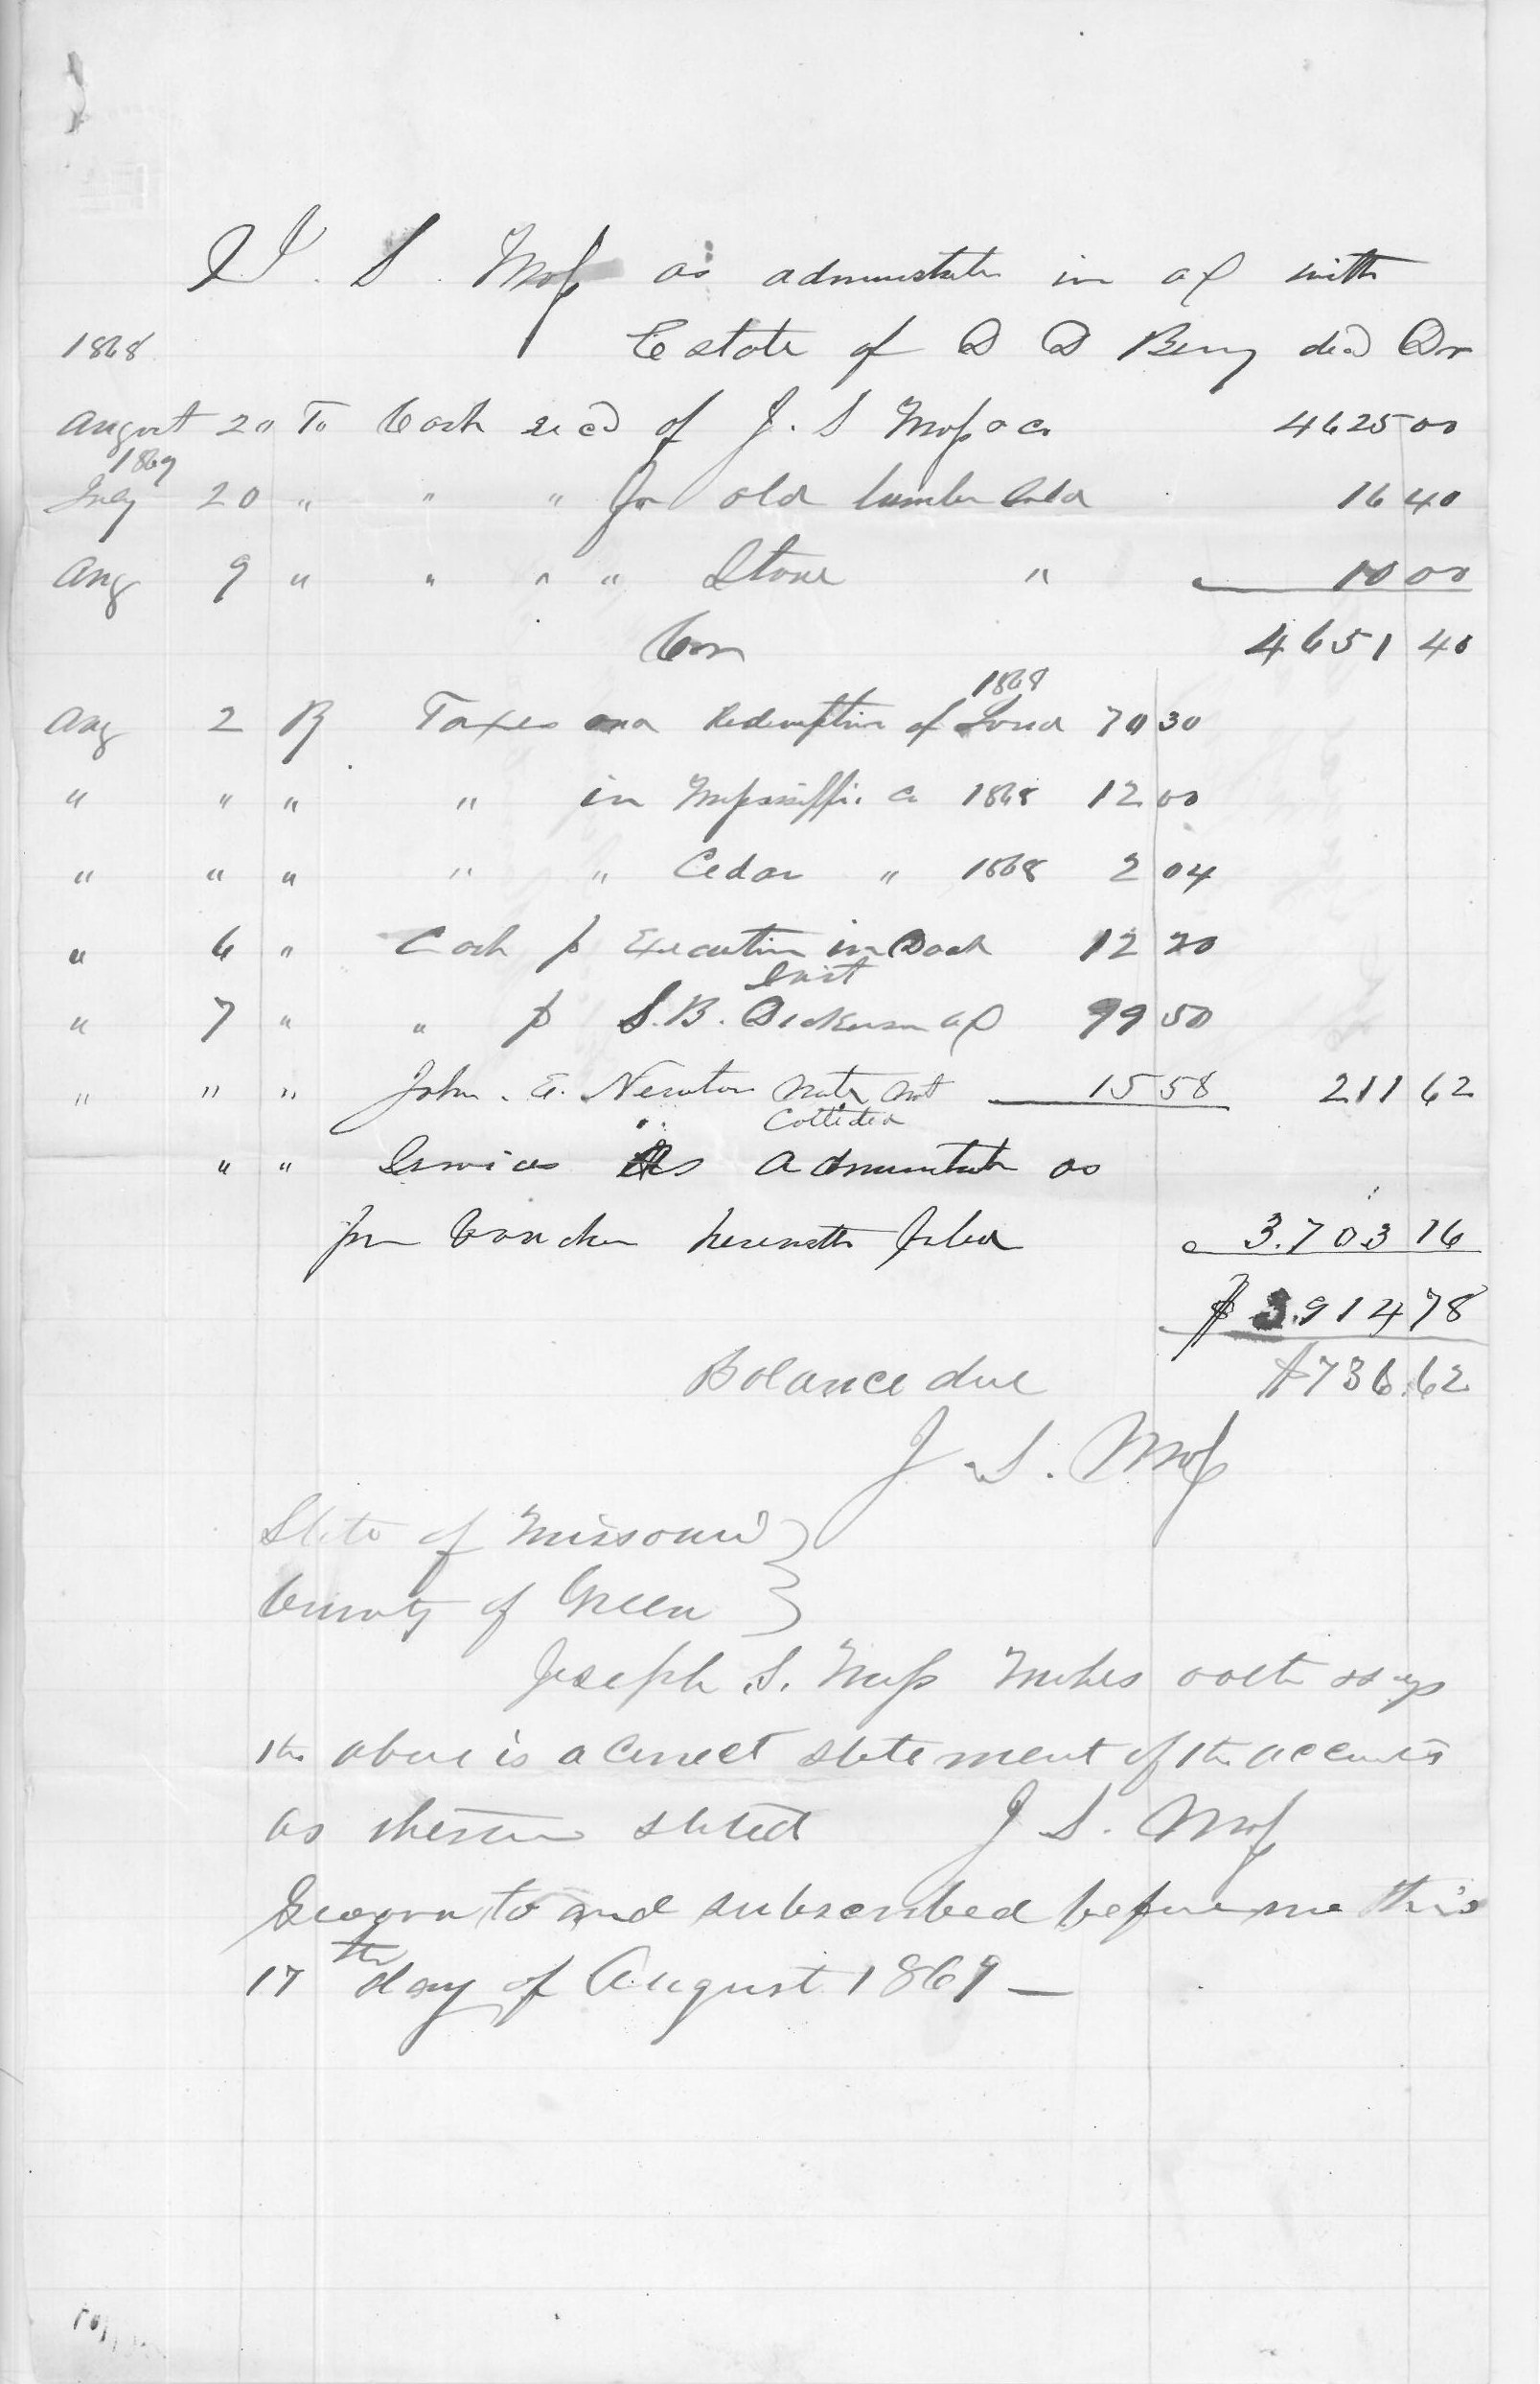 J. S. Moss as administrator in a/c with
1868 Estate of D D Berry decd Dr
August 20 To Cash recd of J. S Moss & Co 4625 00
1869
July 20 " " " for old lumber sold 16 40
Aug 9 " " " " Stone " 10 00
Con 4651 40
1868
Aug 2 By Taxes and Redemption of Land 70 30
" " " " in Mississippi Co 1868 12 00
" " " " " Cedar " 1868 2 04
" 6 " Cash p Execution in Doak 12 20
suit
" 7 " " p S. B. Dickerson a/c 99 50
" " " John. E. Newton Note not 15 58 211 62
Collected
" " Services As Administrator as
per Voucher herewith filed 3.703 16
$ 3.914 78
Balance due $736.62
J. S. Moss
State of Missouri }
County of Green }
Joseph S. Moss Makes oath & says
the above is a Correct statement of the accounts
as therein stated J S. Moss
Sworn to and subscribed before me this
17th day of August 1869 —